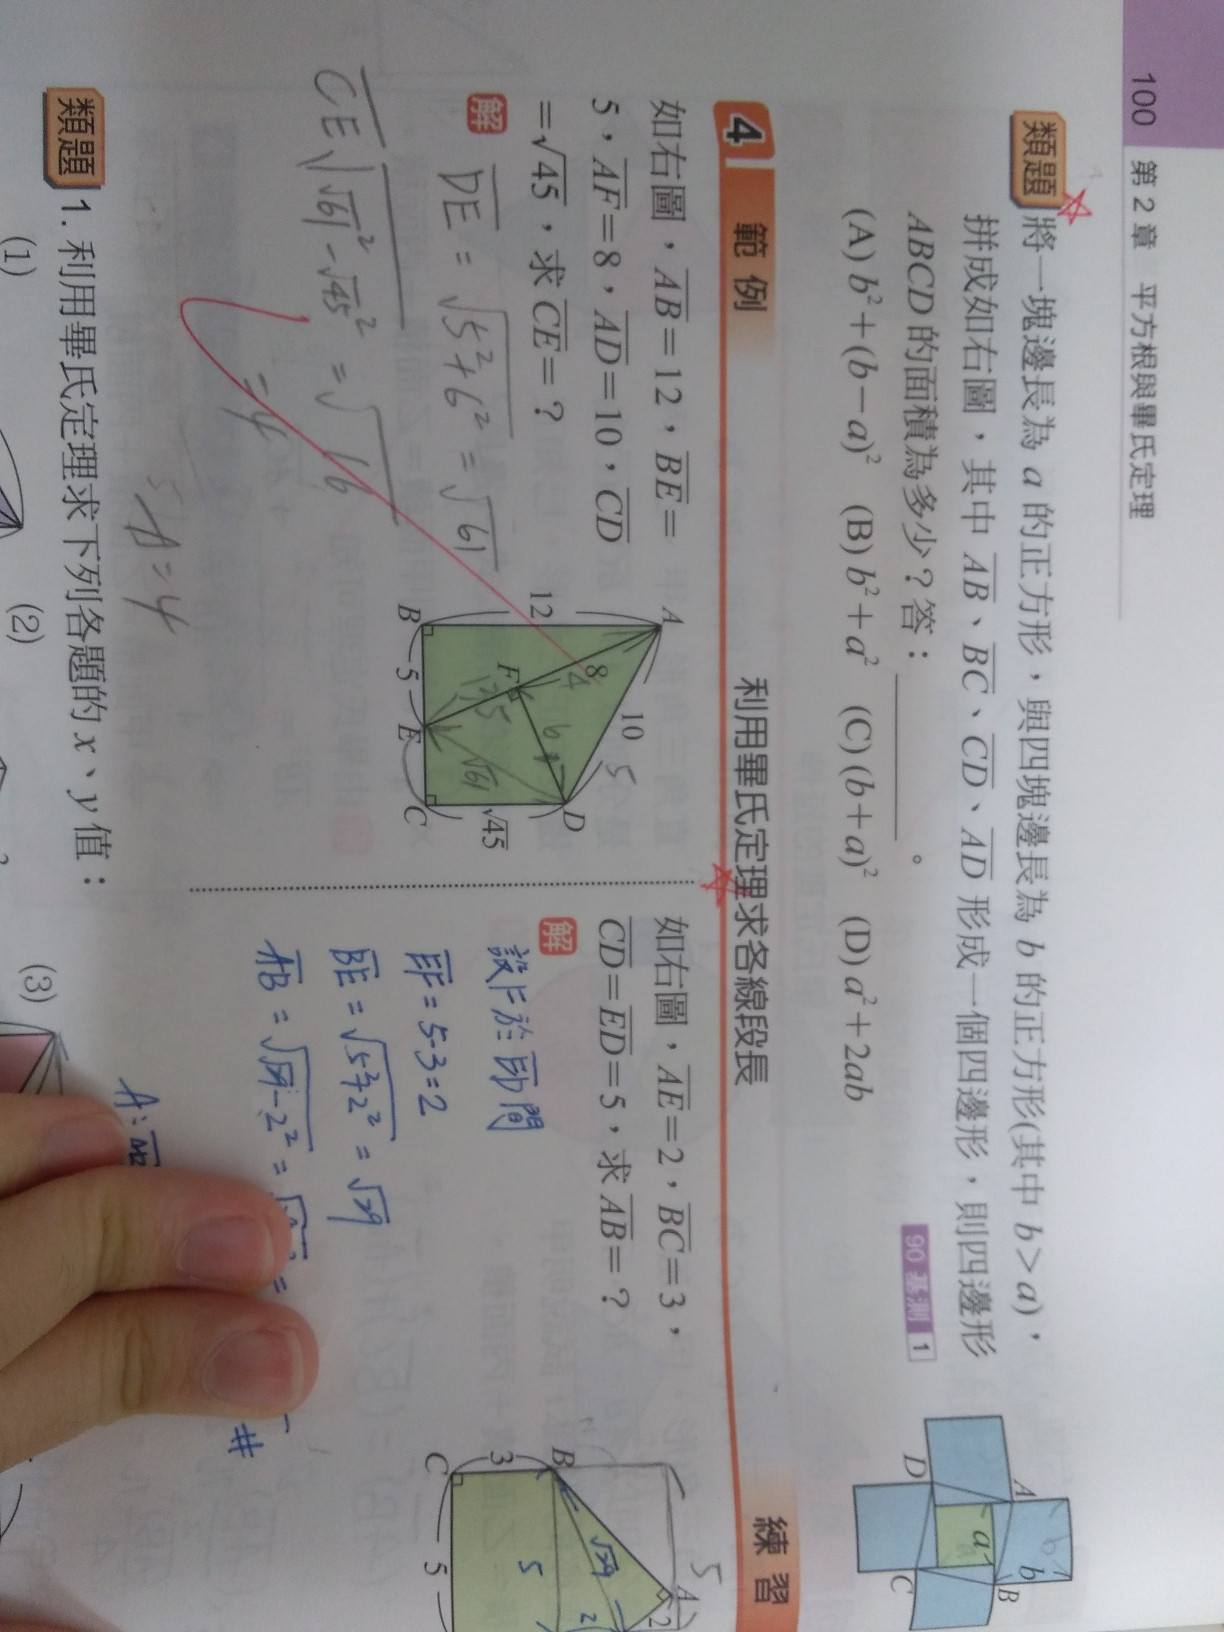 100 第2章 平方根與畢氏定理
類題 將一塊邊長為 a 的正方形，與四塊邊長為 b 的正方形(其中 b>a)，
拼成如右圖，其中 AB、BC、CD、AD 形成一個四邊形，則四邊形
ABCD 的面積為多少？答：＿＿＿＿。 90 基測 1
(A) b²+(b−a)² (B) b²+a² (C) (b+a)² (D) a²+2ab
A
b
B
a
D
C
4 範例 利用畢氏定理求各線段長 練習
如右圖，AB=12，BE=
5，AF=8，AD=10，CD
=√45，求 CE=？
解
DE = √5²+6² = √61
CE √√61²-√45² = √16
= 4
A = 4
A
10
8
12
D
F
6
√61
√45
B
5
E
C
如右圖，AE=2，BC=3，
CD=ED=5，求 AB=？
解
EF = 5-3 = 2
BE = √5²+2² = √29
A:
#
5
A
2
√29
B
5
3
C
5
類題 1. 利用畢氏定理求下列各題的 x、y 值：
(1) (2) (3)